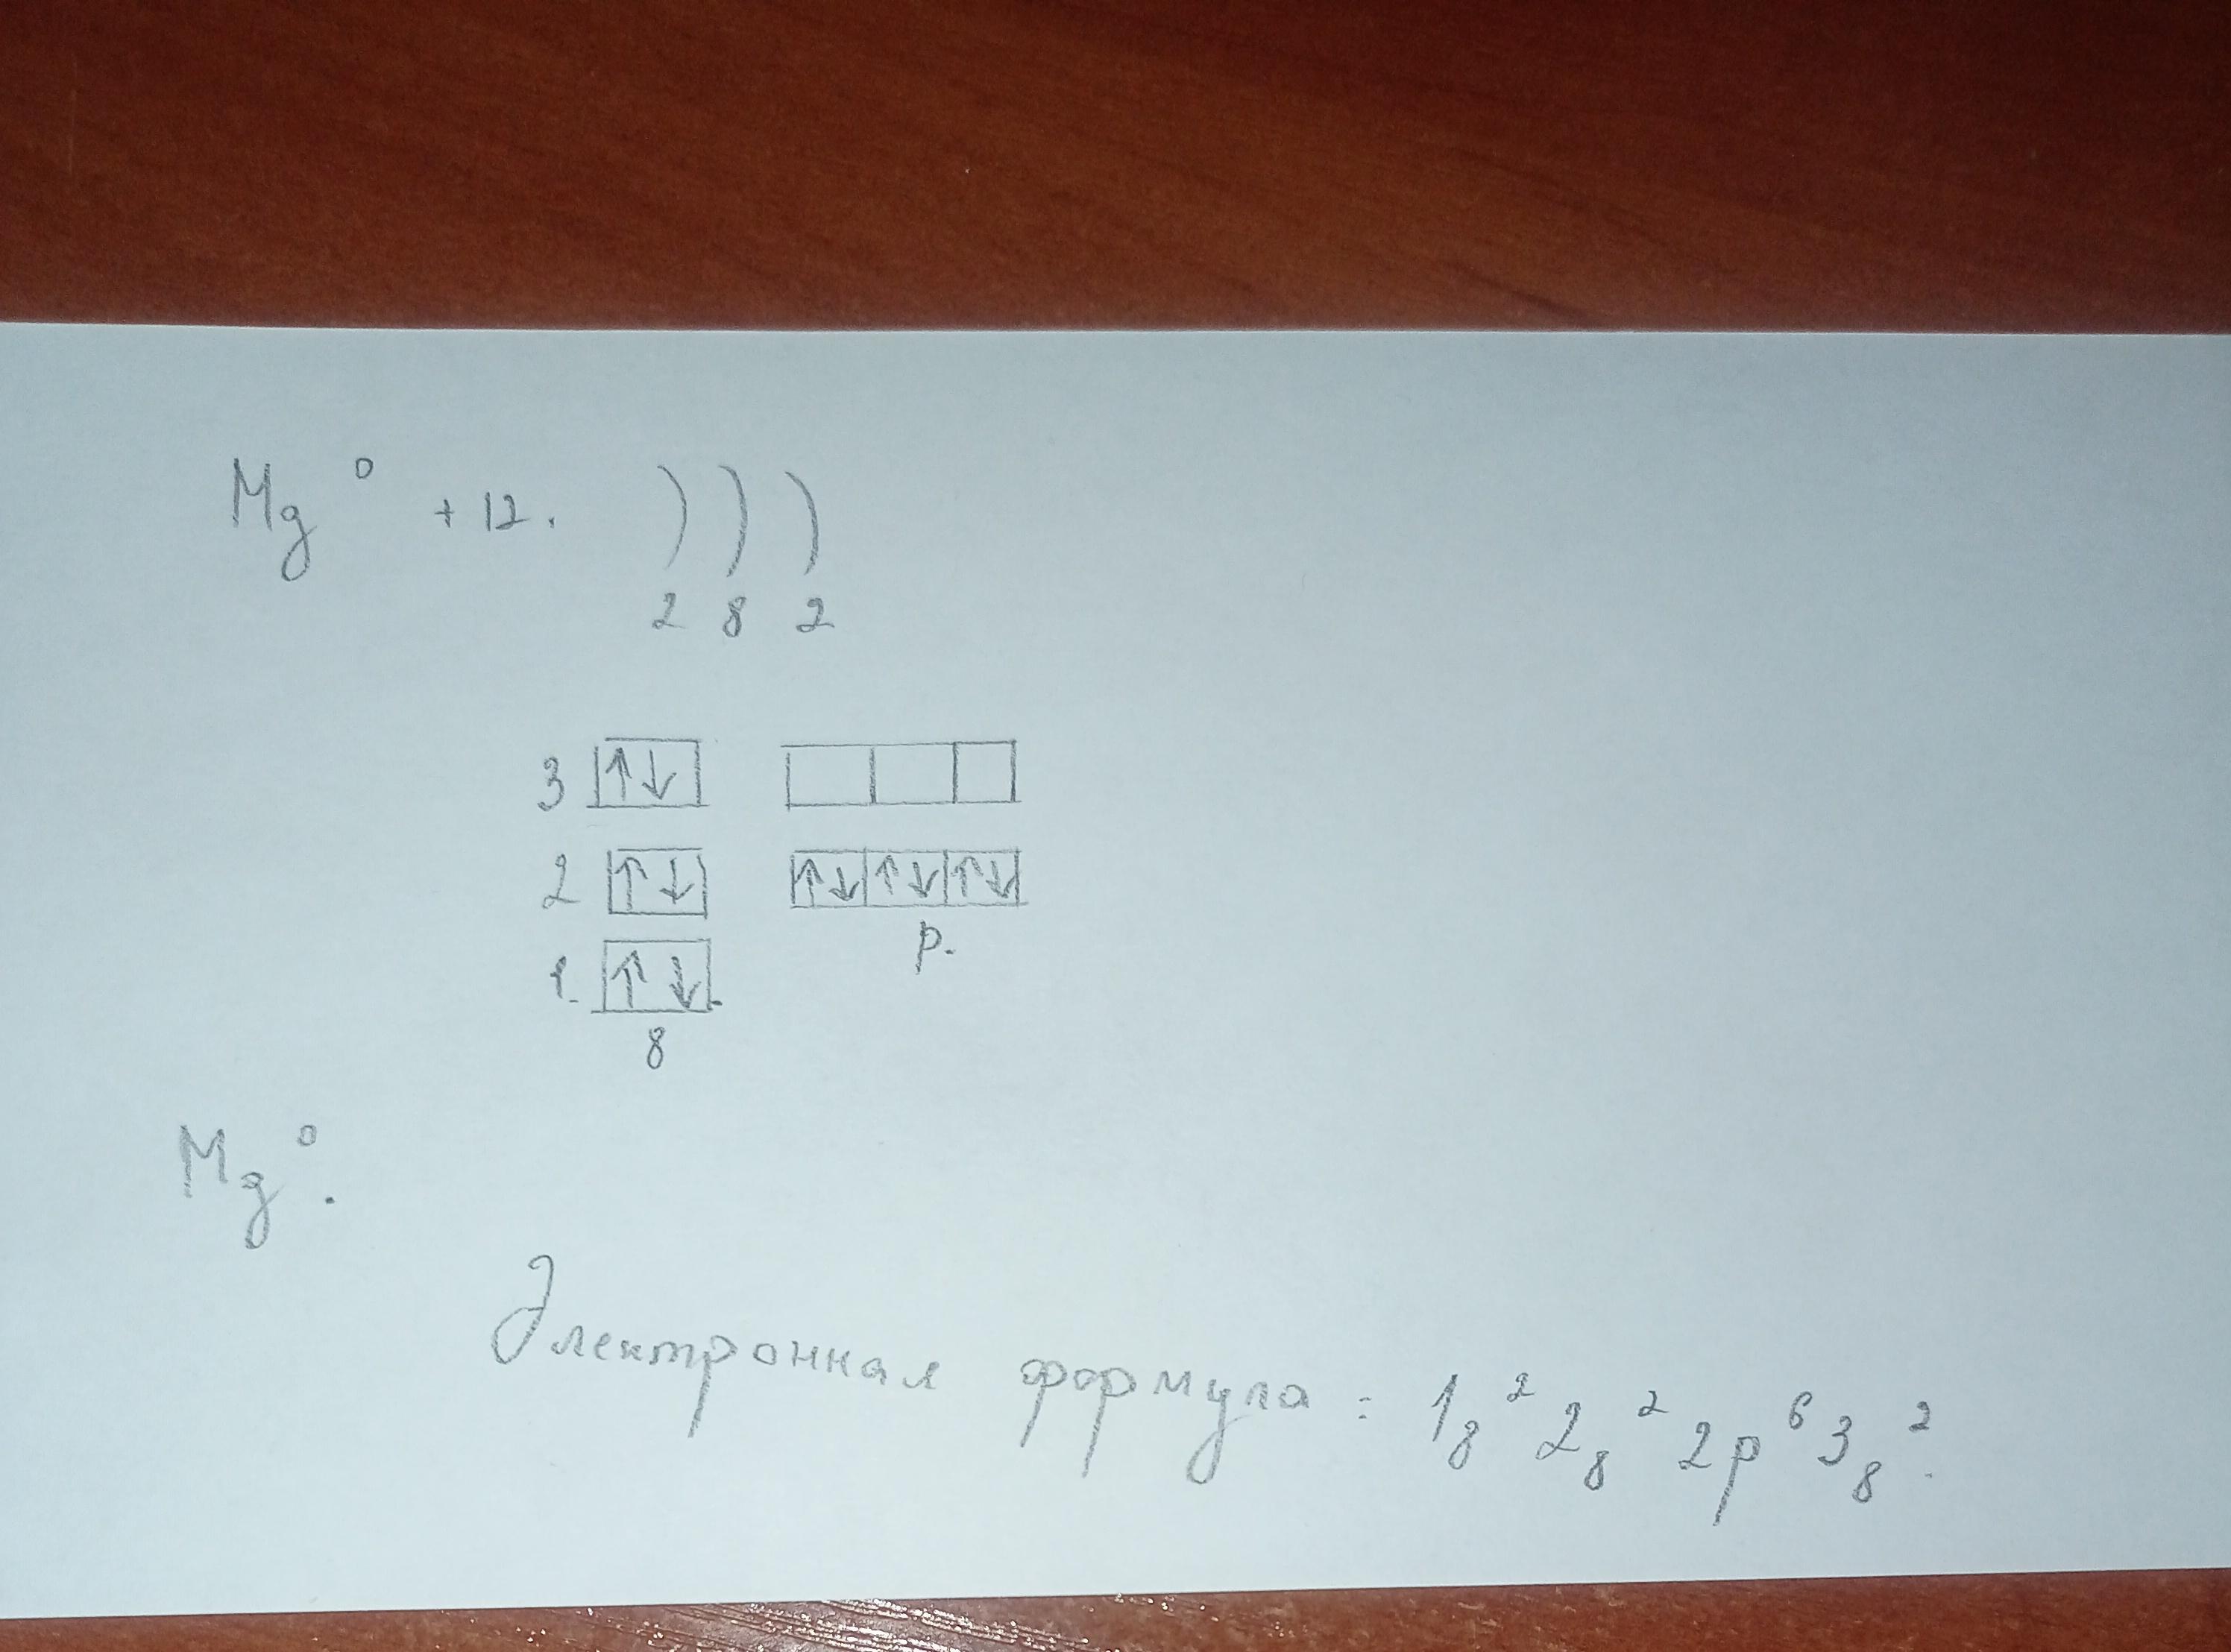 Mg⁰ +12. ) ) )
2 8 2
3 ↑↓
2 ↑↓ ↑↓ ↑↓ ↑↓
p.
1. ↑↓
8
Mg⁰.
Электронная формула = 1₈² 2₈² 2p⁶ 3₈².